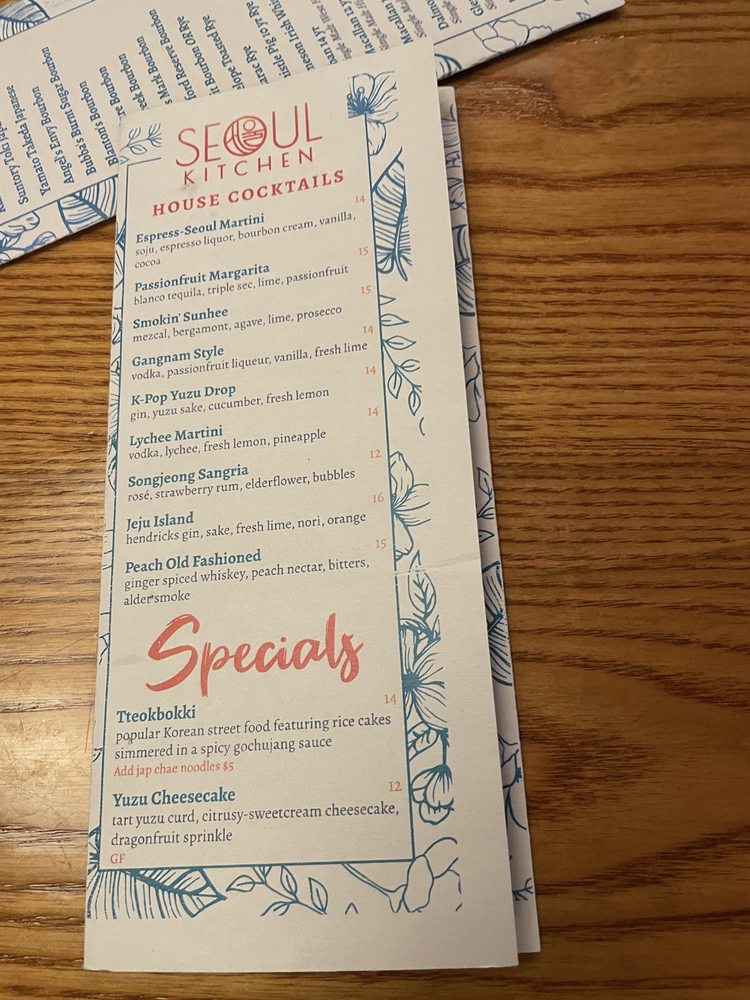 Suntory Toki Japanese
Yamato Takeda Japanese
Angel's Envy Bourbon
Bubba's Burnt Sugar Bourbon
Blanton's Bourbon
Bourbon
Mark Bourbon
Reserve Bourbon
Bourbon OR Rye
Toasted Rye
Rye
Pig 10yr Rye
Irish
14 yr
Macallan
SEOUL
KITCHEN
HOUSE COCKTAILS
14
Espress-Seoul Martini
soju, espresso liquor, bourbon cream, vanilla,
cocoa
15
Passionfruit Margarita
blanco tequila, triple sec, lime, passionfruit
15
Smokin' Sunhee
mezcal, bergamont, agave, lime, prosecco
14
Gangnam Style
vodka, passionfruit liqueur, vanilla, fresh lime
14
K-Pop Yuzu Drop
gin, yuzu sake, cucumber, fresh lemon
14
Lychee Martini
vodka, lychee, fresh lemon, pineapple
12
Songjeong Sangria
rosé, strawberry rum, elderflower, bubbles
16
Jeju Island
hendricks gin, sake, fresh lime, nori, orange
15
Peach Old Fashioned
ginger spiced whiskey, peach nectar, bitters,
alder smoke
Specials
14
Tteokbokki
popular Korean street food featuring rice cakes
simmered in a spicy gochujang sauce
Add jap chae noodles $5
12
Yuzu Cheesecake
tart yuzu curd, citrusy-sweetcream cheesecake,
dragonfruit sprinkle
GF